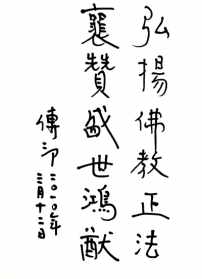 弘揚佛教正法
襄贊盛世鴻猷
傳印 二〇一〇年
三月十二日